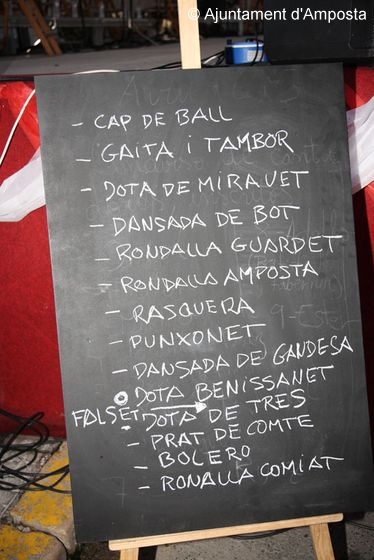 © Ajuntament d'Amposta
- CAP DE BALL
- GAITA i TAMBOR
- DOTA DE MIRAVET
- DANSADA DE BOT
- RONDALLA GUARDET
- RONDALLA AMPOSTA
- RASQUERA
- PUNXONET
- DANSADA DE GANDESA
DOTA BENISSANET
FALSET - DOTA DE TRES
- PRAT DE COMTE
- BOLERO
- RONALLA COMIAT